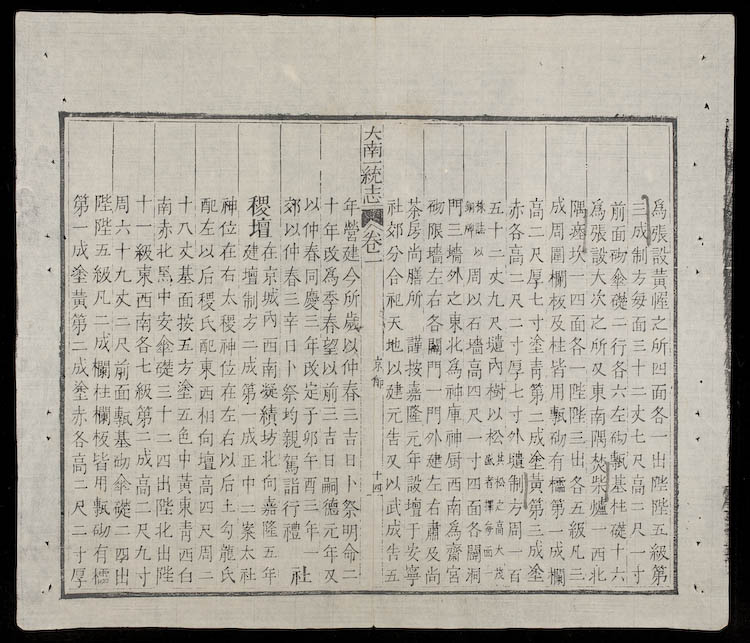 為張設黃幄之所四面各一出陛陛五級第
三成制方每面三十二丈七尺高二尺一寸
前面砌傘礎一行各六左砌甎基柱礎十六
為張設大次之所又東南隅焚柴爐一西北
隅瘞坎一四面各一陛陛三出各五級凡三
成周圍欄板及柱皆用甎砌有櫺第一成欄
高二尺厚七寸塗青第二成塗黃第三成塗
赤各高二尺二寸厚七寸外壝制方周一百
五十二丈九尺壝內樹以松其松之高大茂盛者擇每
株誌以銅牌周以石墻高四尺一寸四面各闢洞
門三墻外之東北為神庫神廚西南為齋宮
砌限墻左右各闢門一門外建左右肅及尚
茶房尚膳所 謹按嘉隆元年設壇于安寧
社郊分合祀天地以建元告又以武成告五
大南一統志 卷一 京師 十四
年營建今所歲以仲春三吉日卜祭明命二
十年改為季春望以前三吉日嗣德元年又
以仲春同慶三年改定子卯午酉三年一
郊以仲春三辛日卜祭均親駕詣行禮 社
稷壇在京城內西南凝績坊北向嘉隆五年
建壇制方二成第一成正中二案太社
神位在右太稷神位在左右以后土勾龍氏
配左以后稷氏配東西相向壇高四尺周二
十八丈基面按五方塗五色中黃東青西白
南赤北黑中安傘礎三十二四出陛北出陛
十一級東西南各七級第二成高二尺九寸
周六十九丈二尺前面甎基砌傘礎二四出
陛陛五級凡二成欄柱欄板皆用甎砌有櫺
第一成塗黃第二成塗赤各高二尺二寸厚